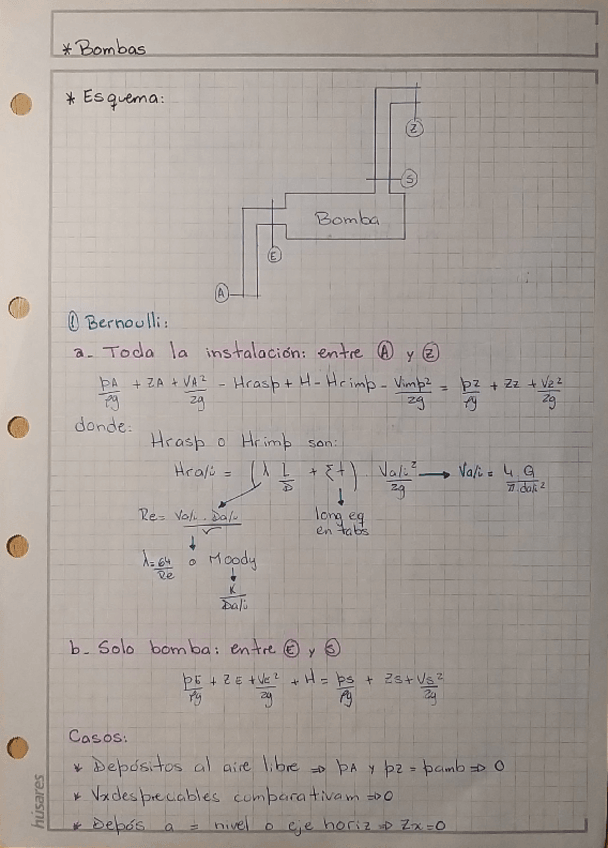 * Bombas
* Esquema:
Z
S
Bomba
E
A
① Bernoulli:
a- Toda la instalación: entre Ⓐ y Ⓩ
pA/ρg + ZA + VA²/2g - Hrasp + H - Hrimp - Vimp²/2g = pZ/ρg + Zz + Vz²/2g
donde:
Hrasp o Hrimp son:
Hra/i = (λ L/D + Σξ) Va/i²/2g → Va/i = 4.Q/π.da/i²
Re = Va/i . Da/i/ν
long eq
en tabs
λ = 64/Re o Moody
K/Da/i
b- Solo bomba: entre Ⓔ y Ⓢ
pE/ρg + ZE + VE²/2g + H = ps/ρg + Zs + Vs²/2g
Casos:
* Depósitos al aire libre ⇒ pA y pZ = pamb ⇒ 0
* Vx despreciables comparativam ⇒ 0
* Depós a = nivel o eje horiz ⇒ Zx = 0
húsares